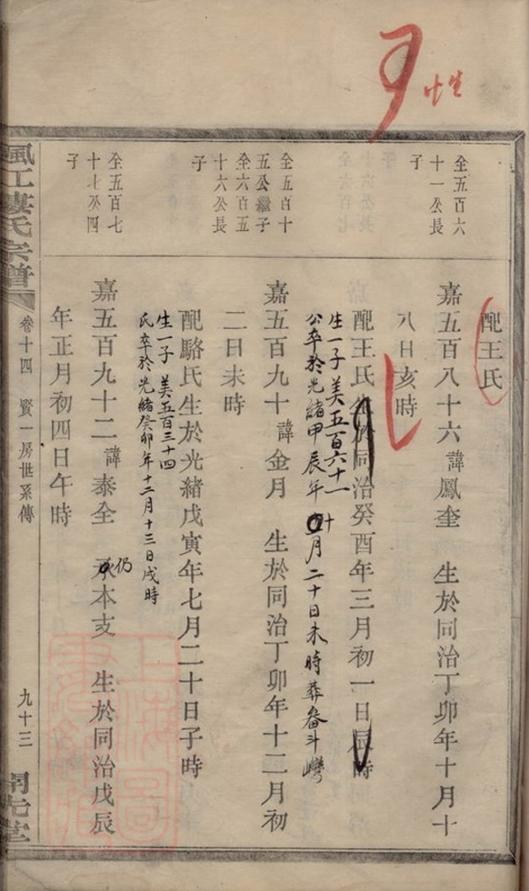 性
仝五百六
十一公長
子
配王氏
嘉五百八十六 諱鳳奎 生於同治丁卯年十月十
八日亥時
配王氏 於同治癸酉年三月初一日辰時
生一子 美五百六十一
公卒於光緒甲辰年 十月二十日未時葬畚斗灣
仝五百十
五公繼子
仝六百五
十六公長
子
嘉五百九十 諱金月 生於同治丁卯年十二月初
二日未時
配駱氏生於光緒戊寅年七月二十日子時
生一子 美五百三十四
氏卒於光緒癸卯年十二月十三日戌時
仝五百七
十七公四
子
嘉五百九十二 諱泰全 仍承本支 生於同治戊辰
年正月初四日午時
楓工婁氏宗譜
卷十四 賢一房世系傳
九十三